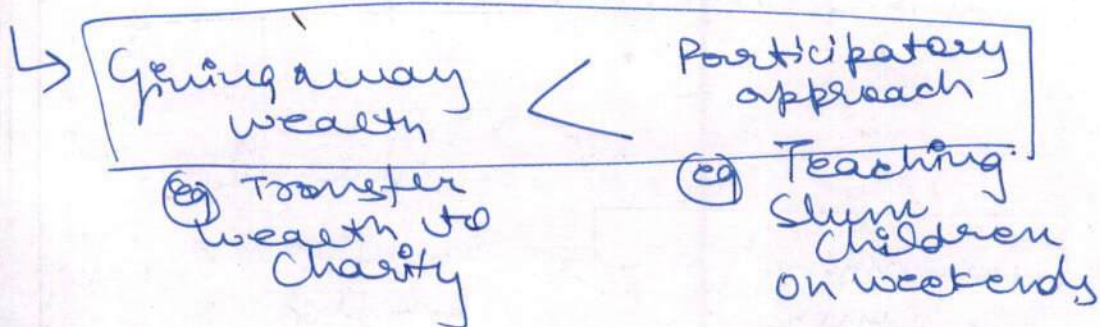 ↳ Giving away wealth < Participatory approach
eg Transfer wealth to Charity
eg Teaching Slum Children on weekends